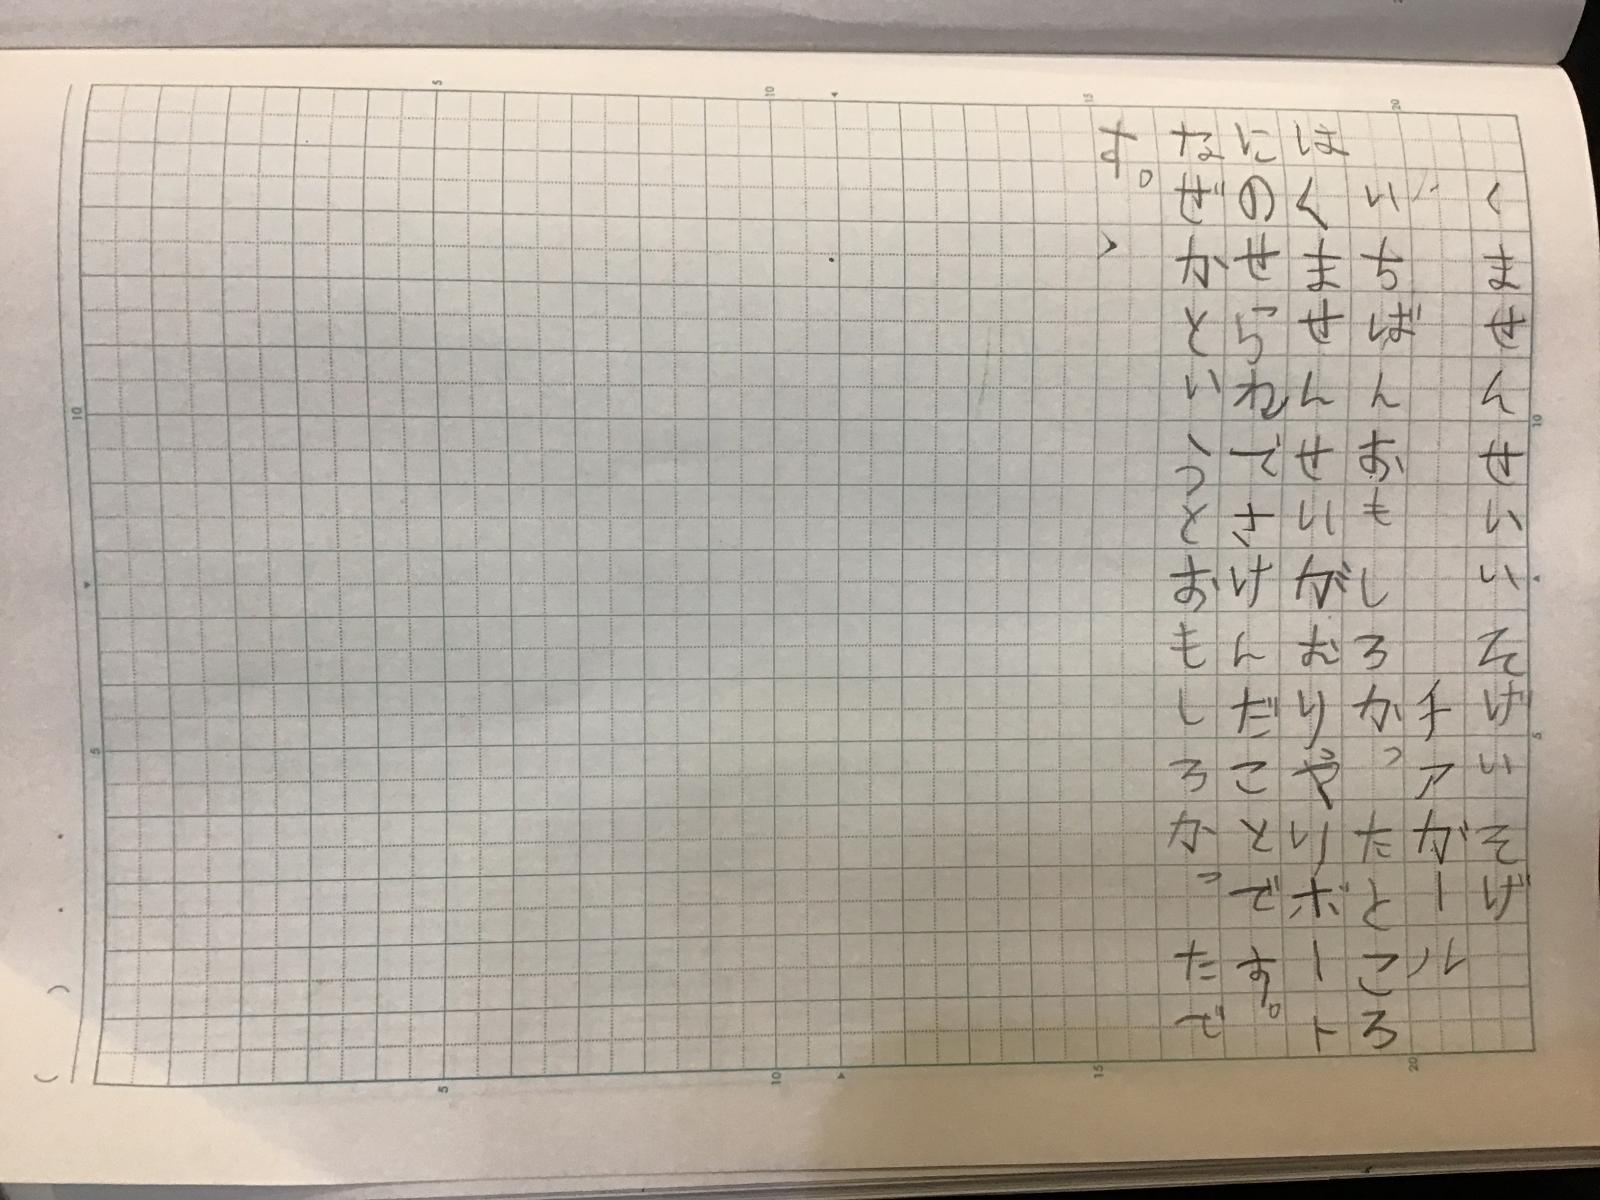 くませんせいいそげいそげ
チアガール
いちばんおもしろかったところ
はくませんせいがむりやりボート
にのせられてさけんだことです。
なぜかというとおもしろかったで
す。